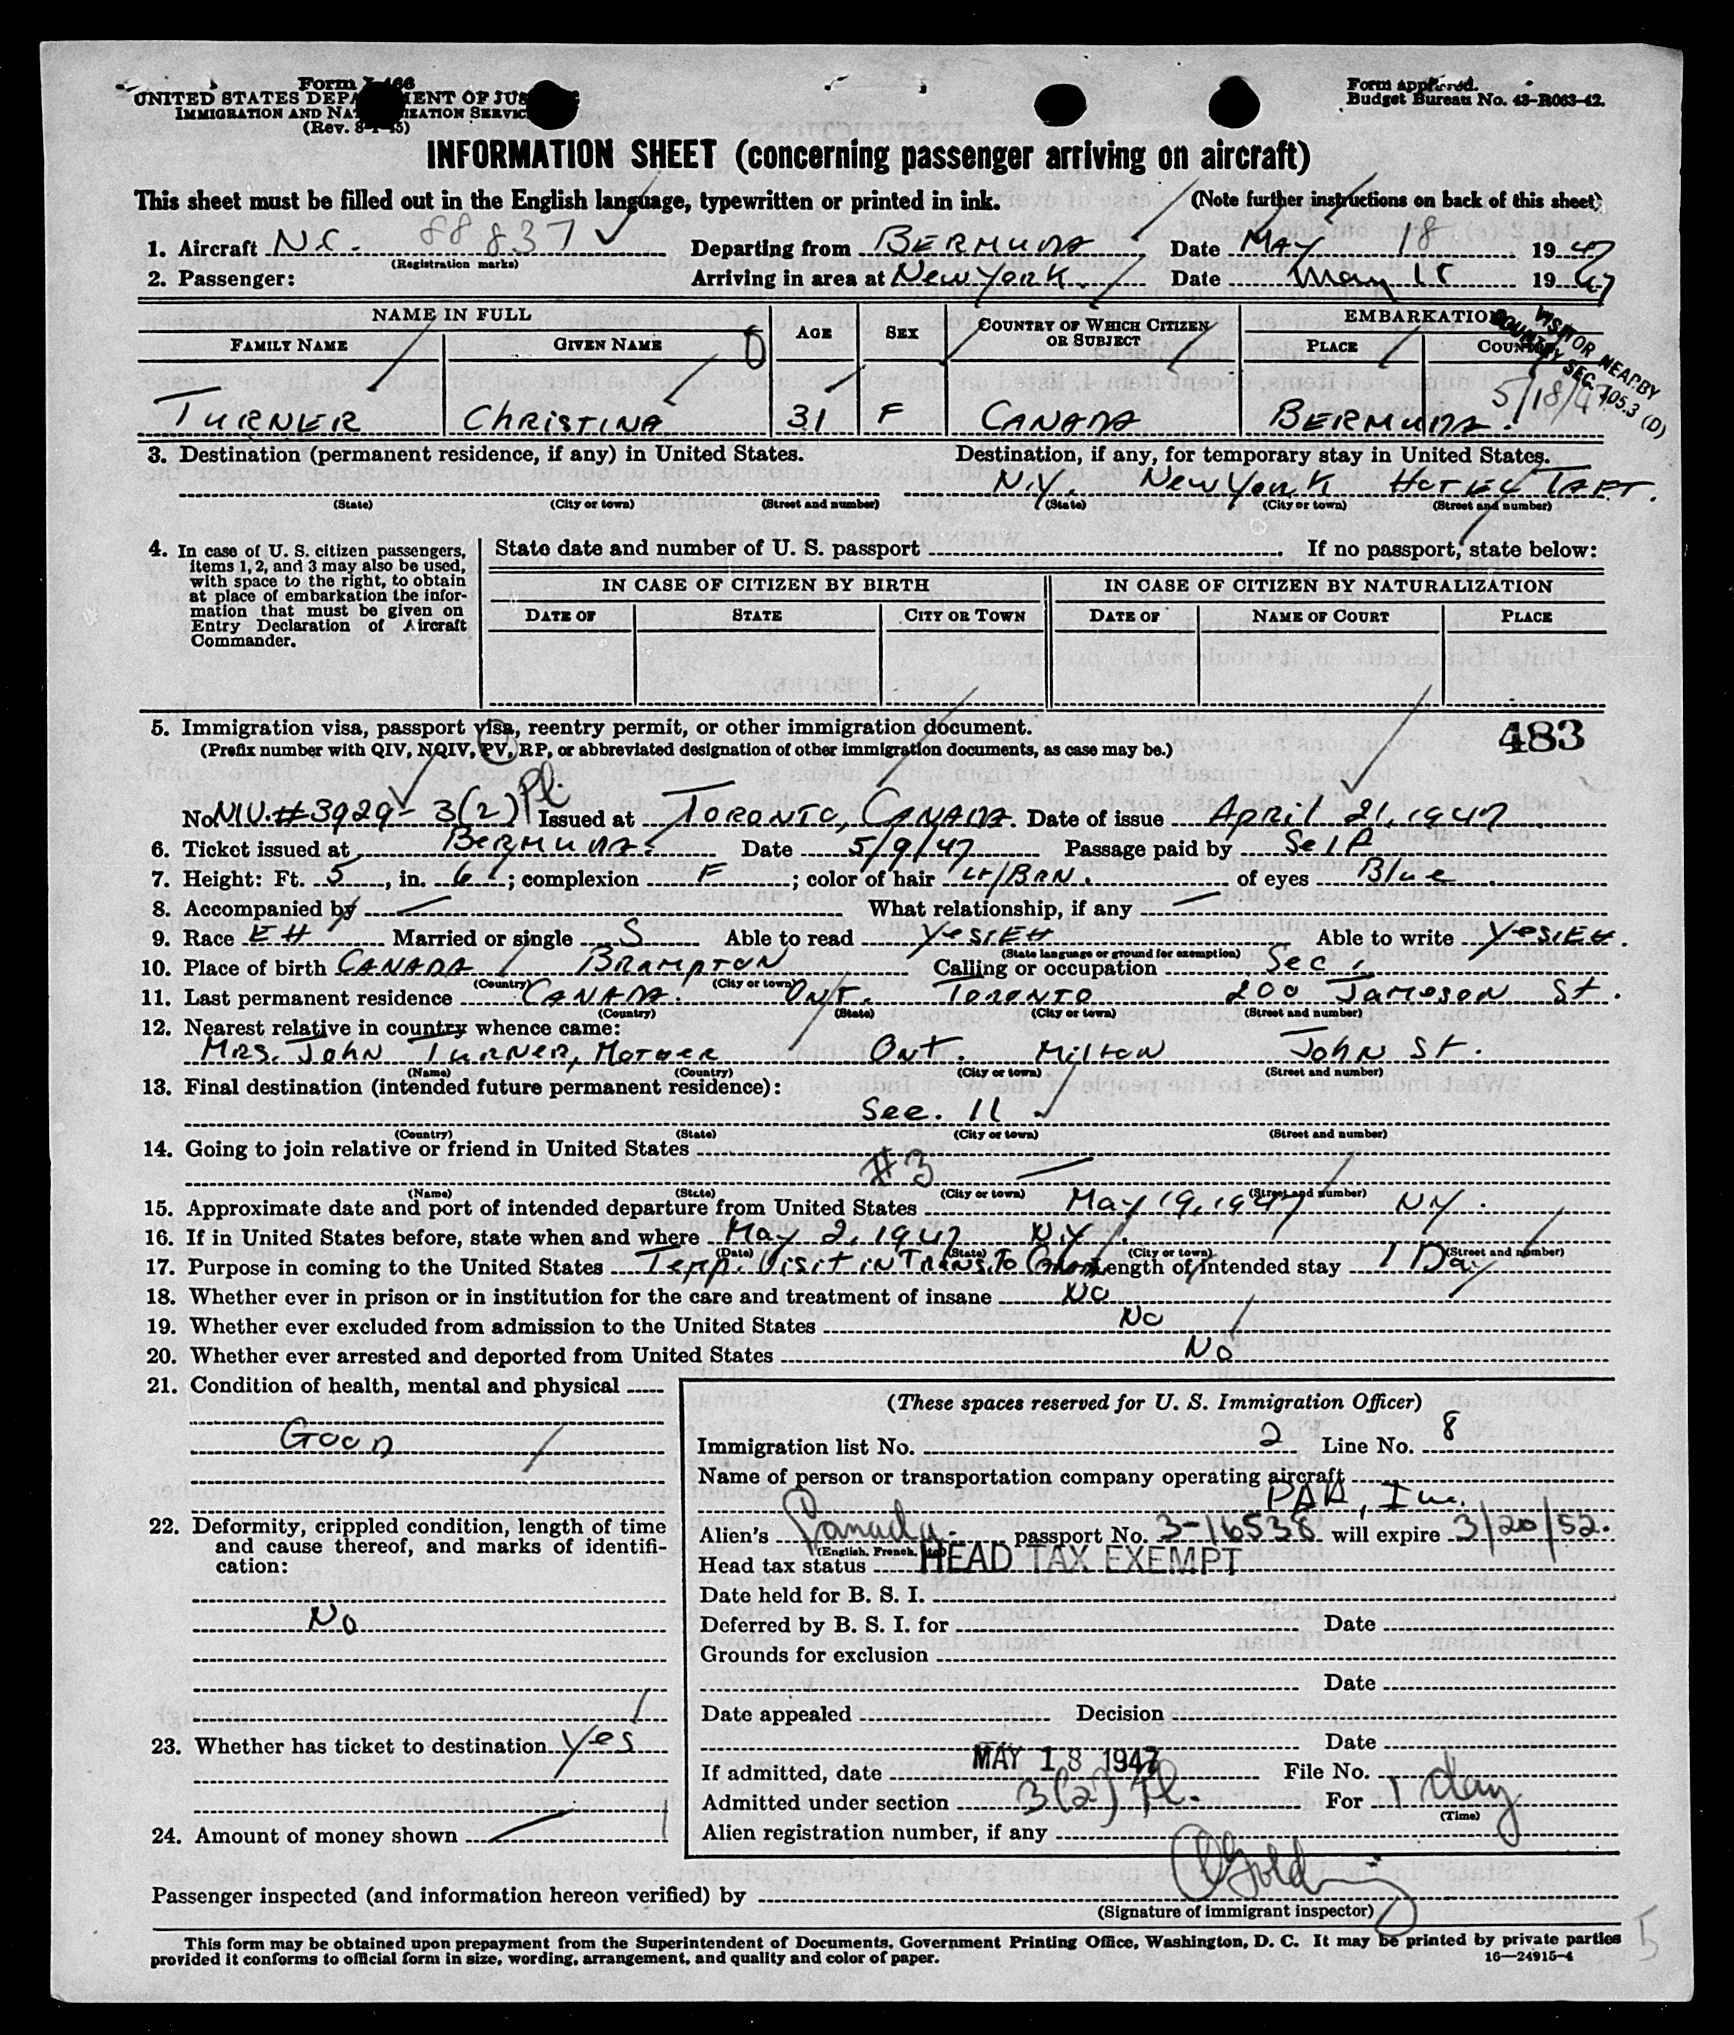 Form I-466
UNITED STATES DEPARTMENT OF JUSTICE
IMMIGRATION AND NATURALIZATION SERVICE
(Rev. 8-1-45)
Form approved.
Budget Bureau No. 43-R063-42.
INFORMATION SHEET (concerning passenger arriving on aircraft)
This sheet must be filled out in the English language, typewritten or printed in ink. (Note further instructions on back of this sheet)
1. Aircraft N.C. 88837 Departing from BERMUDA Date MAY 18 1947
(Registration marks)
2. Passenger: Arriving in area at New York Date May 18 1947
NAME IN FULL AGE SEX COUNTRY OF WHICH CITIZEN OR SUBJECT EMBARKATION
FAMILY NAME GIVEN NAME PLACE COUNTRY
VISITOR NEARBY
COUNTRY SEC. 105.3 (D)
5/18/47
TURNER CHRISTINA 31 F CANADA BERMUDA.
3. Destination (permanent residence, if any) in United States. Destination, if any, for temporary stay in United States.
N.Y. New York HOTEL TAFT.
(State) (City or town) (Street and number) (State) (City or town) (Street and number)
4. In case of U. S. citizen passengers, items 1, 2, and 3 may also be used, with space to the right, to obtain at place of embarkation the information that must be given on Entry Declaration of Aircraft Commander.
State date and number of U. S. passport . If no passport, state below:
IN CASE OF CITIZEN BY BIRTH IN CASE OF CITIZEN BY NATURALIZATION
DATE OF STATE CITY OR TOWN DATE OF NAME OF COURT PLACE
5. Immigration visa, passport visa, reentry permit, or other immigration document. 483
(Prefix number with QIV, NQIV, PV, RP, or abbreviated designation of other immigration documents, as case may be.)
No. NIV. #3929-3(2) Pl. Issued at TORONTO, CANADA. Date of issue April 21, 1947
6. Ticket issued at BERMUDA. Date 5/9/47 Passage paid by Self
7. Height: Ft. 5, in. 6; complexion F; color of hair LT/BRN. of eyes Blue
8. Accompanied by — What relationship, if any —
9. Race EH Married or single S Able to read Yes/EH Able to write Yes/EH.
(State language or ground for exemption)
10. Place of birth CANADA BRAMPTON Calling or occupation Sec.
(Country) (City or town)
11. Last permanent residence CANADA. ONT. TORONTO 200 JAMESON St.
(Country) (State) (City or town) (Street and number)
12. Nearest relative in country whence came:
MRS. JOHN TURNER, MOTHER ONT. MILTON JOHN St.
(Name) (Country) (City or town) (Street and number)
13. Final destination (intended future permanent residence):
See. 11
(Country) (State) (City or town) (Street and number)
14. Going to join relative or friend in United States
#3 —
(Name) (State) (City or town) (Street and number)
15. Approximate date and port of intended departure from United States May 19, 1947 NY.
16. If in United States before, state when and where May 2, 1947 N.Y.
(Date) (State) (City or town) (Street and number)
17. Purpose in coming to the United States Temp. Visit in Trans. To Length of intended stay 1 Day
18. Whether ever in prison or in institution for the care and treatment of insane No
19. Whether ever excluded from admission to the United States No
20. Whether ever arrested and deported from United States No
21. Condition of health, mental and physical
Good
22. Deformity, crippled condition, length of time and cause thereof, and marks of identification:
No
23. Whether has ticket to destination Yes
24. Amount of money shown —
(These spaces reserved for U. S. Immigration Officer)
Immigration list No. 2 Line No. 8
Name of person or transportation company operating aircraft
PAA, Inc.
Alien's Canada. passport No. 3-16538 will expire 3/20/52.
(English, French, etc.)
Head tax status HEAD TAX EXEMPT
Date held for B. S. I.
Deferred by B. S. I. for Date
Grounds for exclusion
Date
Date appealed Decision
Date
If admitted, date MAY 18 1947 File No.
Admitted under section 3(2) Pl. For 1 day
(Time)
Alien registration number, if any
Passenger inspected (and information hereon verified) by
(Signature of immigrant inspector)
This form may be obtained upon prepayment from the Superintendent of Documents, Government Printing Office, Washington, D. C. It may be printed by private parties
provided it conforms to official form in size, wording, arrangement, and quality and color of paper. 16—24915-4
5